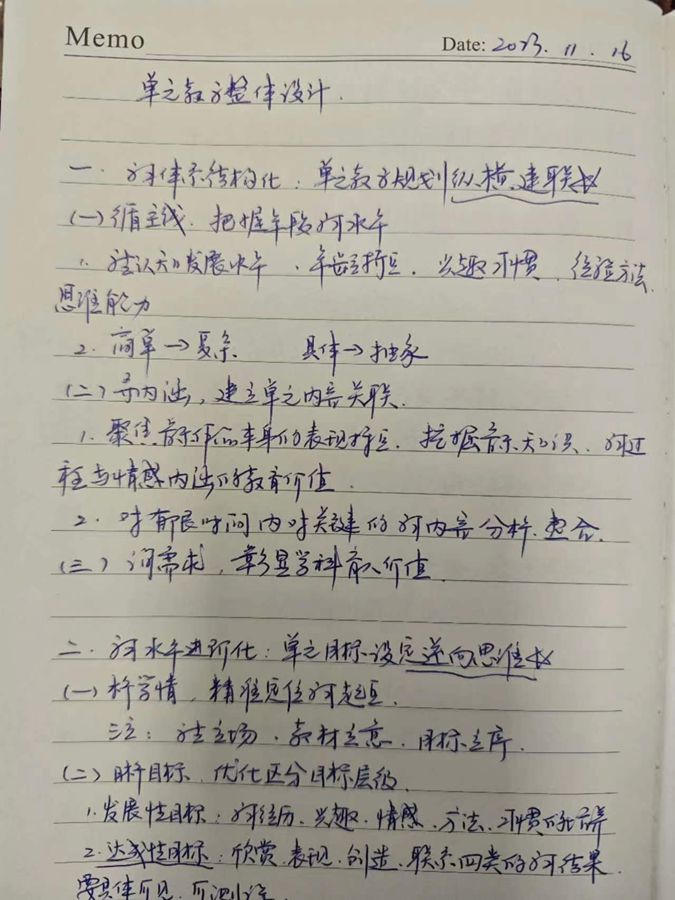 Memo
Date: 2023.11.16
单元教学整体设计.
一. 学习体系结构化: 单元教学规划纵、横、建联
(一) 循主线, 把握年段学习水平
1. 认知发展水平、年龄特点、兴趣习惯、经验方法、
思维能力
2. 简单→复杂 具体→抽象
(二) 寻内涵, 建立单元内容关联.
1. 聚焦音乐作品本身的表现特点, 挖掘音乐知识、学习过
程与情感内涵的教育价值.
2. 对有限时间内对关键的学习内容分析、整合.
(三) 问需求, 彰显学科育人价值.
二. 学习水平进阶化: 单元目标设定逆向思维
(一) 析学情, 精准定位学习起点.
注: 立场、教材立意、目标立序.
(二) 目标, 优化区分目标层级.
1. 发展性目标: 学习经历、兴趣、情感、方法、习惯的培养
2. 达成性目标: 欣赏、表现、创造、联系四类的学习结果
要具体可见、可测